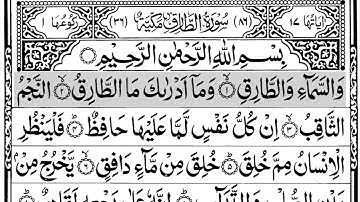 اٰیَاتُهَا ١٧ (٨٦) سُوْرَةُ الطَّارِقِ مَكِّیَّةٌ (٣٦) رُكُوْعُهَا ١
بِسْمِ اللّٰهِ الرَّحْمٰنِ الرَّحِیْمِ
وَالسَّمَآءِ وَالطَّارِقِ ۝١ وَمَاۤ اَدْرٰىكَ مَا الطَّارِقُ ۝٢ النَّجْمُ
الثَّاقِبُ ۝٣ اِنْ كُلُّ نَفْسٍ لَّمَّا عَلَیْهَا حَافِظٌ ۝٤ فَلْیَنْظُرِ
الْاِنْسَانُ مِمَّ خُلِقَ ۝٥ خُلِقَ مِنْ مَّآءٍ دَافِقٍ ۝٦ یَّخْرُجُ مِنْ